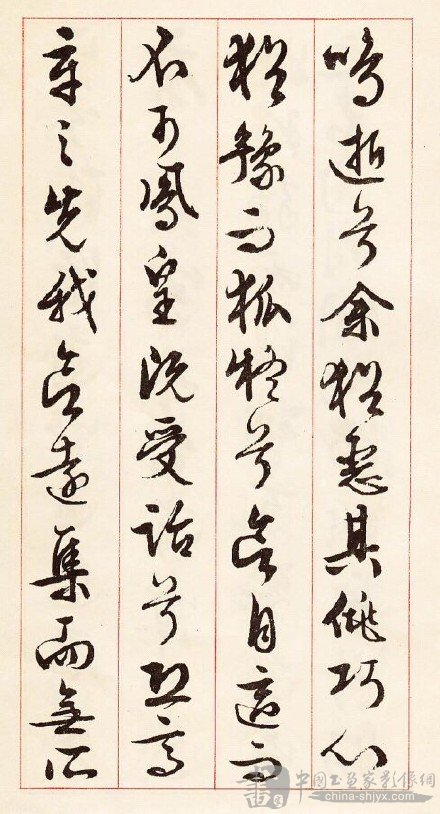 鳴逝兮余猶惡其佻巧心
猶豫而狐疑兮欲自適而
不可鳳皇既受詒兮恐高
辛之先我欲遠集而無所
書
中國书画家影像網
china-shjyx.com